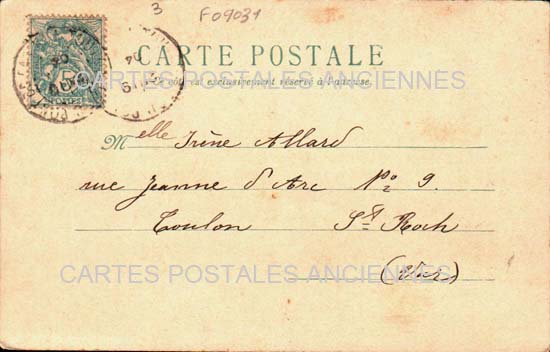 3
F09031
CARTE POSTALE
Ce côté est exclusivement réservé à l'adresse.
CARTES POSTALES ANCIENNES
POSTES
Melle Irène Allard
rue Jeanne d'Arc No 9.
Toulon St Roch
CARTES POSTALES ANCIENNES
(Var)